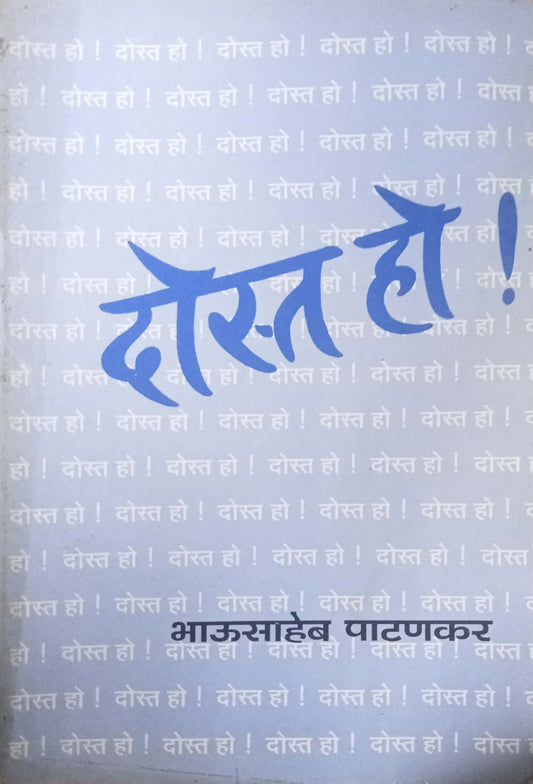 दोस्त हो ! दोस्त हो ! दोस्त हो ! दोस्त हो ! दोस्त हो !
हो ! दोस्त हो ! दोस्त हो ! दोस्त हो ! दोस्त हो ! दोस्त
दोस्त हो ! दोस्त हो ! दोस्त हो ! दोस्त हो ! दोस्त हो !
हो ! दोस्त हो ! दोस्त हो ! दोस्त हो ! दोस्त हो ! दोस्त
दोस्त हो !
दोस्त हो ! दोस्त हो ! दोस्त हो ! दोस्त हो ! दोस्त हो !
हो ! दोस्त हो ! दोस्त हो ! दोस्त हो ! दोस्त हो ! दोस्त
दोस्त हो ! दोस्त हो ! दोस्त हो ! दोस्त हो ! दोस्त हो !
हो ! दोस्त हो ! दोस्त हो ! दोस्त हो ! दोस्त हो ! दोस्त
दोस्त हो ! दोस्त हो ! दोस्त हो ! दोस्त हो ! दोस्त हो !
भाऊसाहेब पाटणकर
हो ! दोस्त हो ! दोस्त हो ! दोस्त हो ! दोस्त हो ! दोस्त
दोस्त हो ! दोस्त हो ! दोस्त हो ! दोस्त हो ! दोस्त हो !
हो ! दोस्त हो ! दोस्त हो ! दोस्त हो ! दोस्त हो ! दोस्त